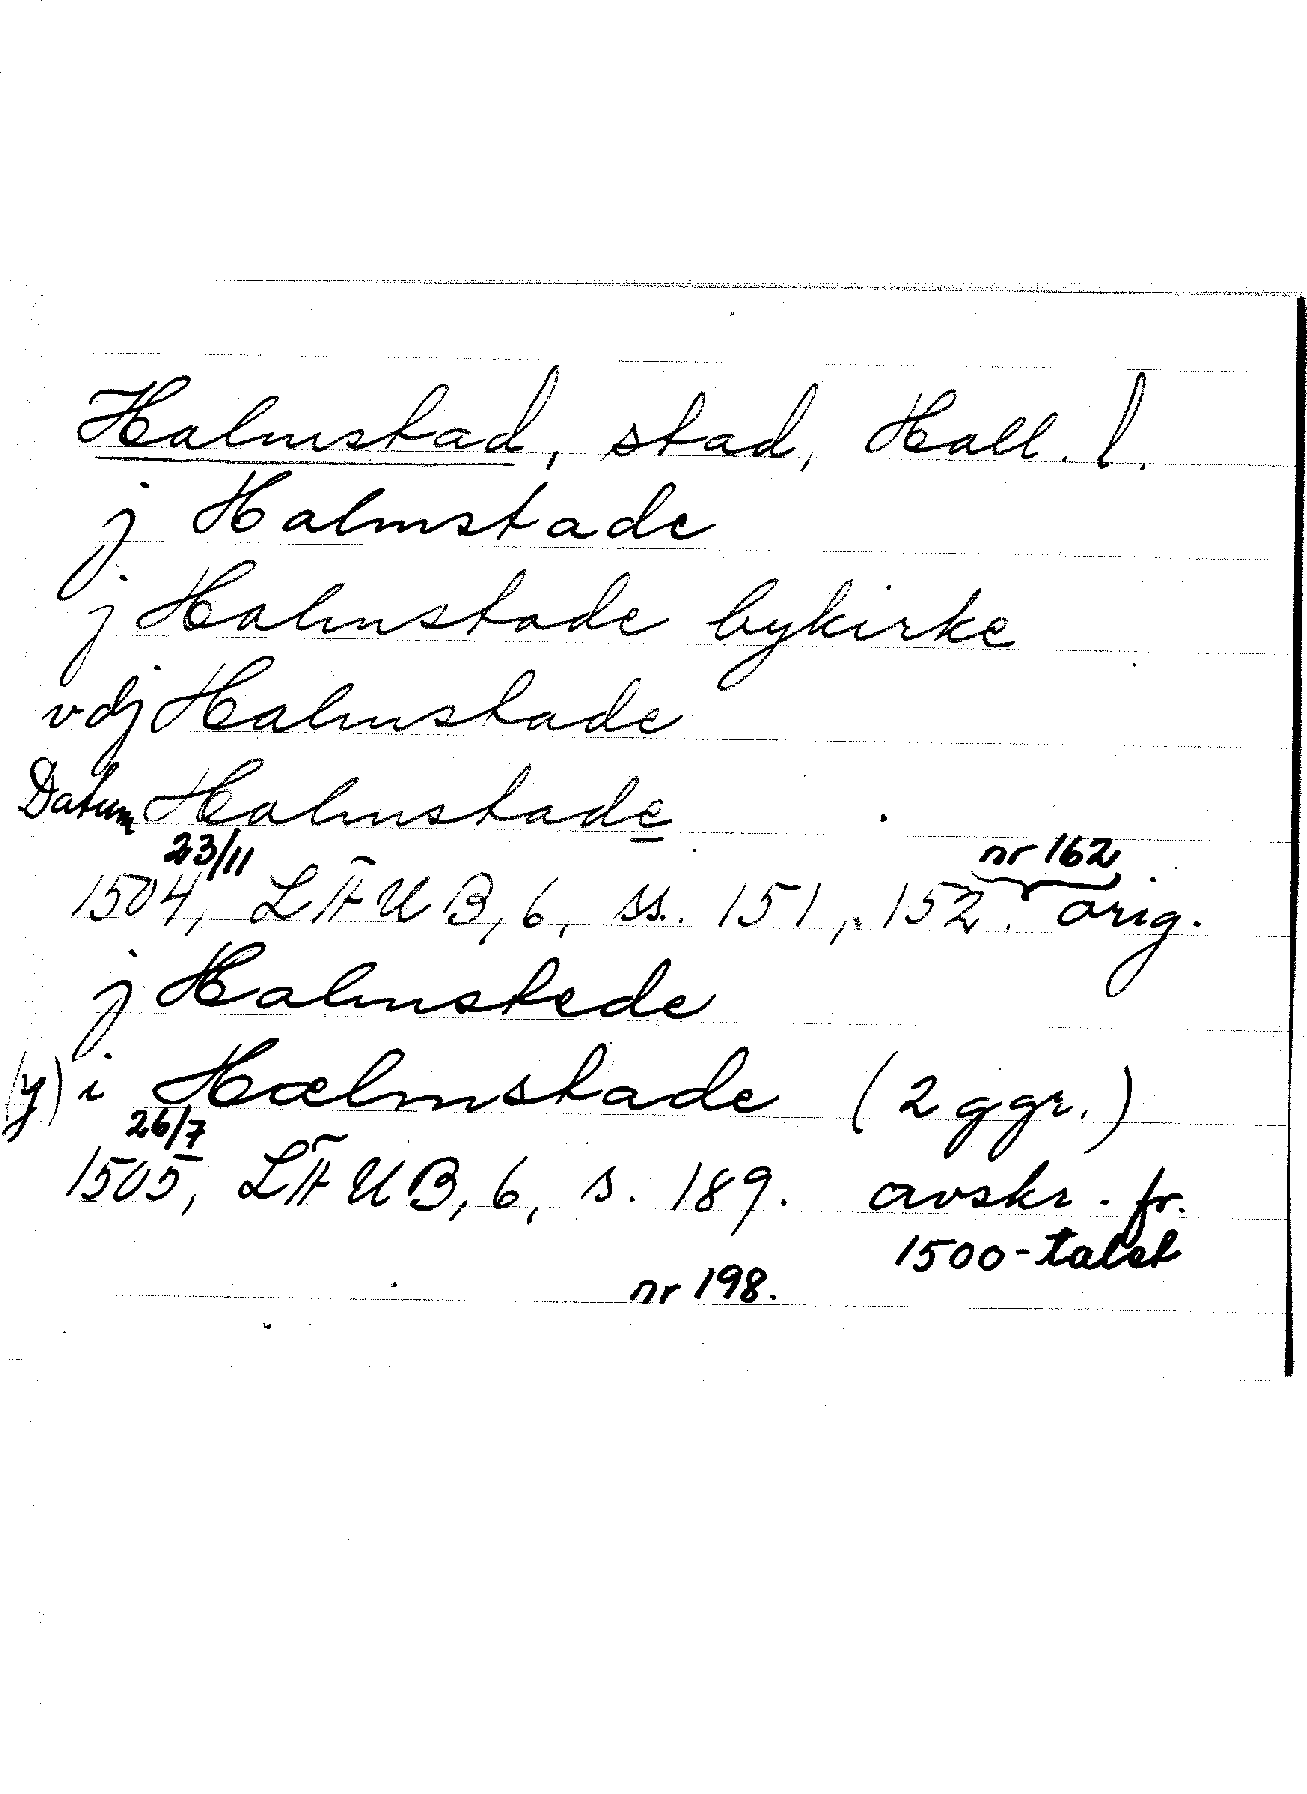 Halmstad, stad, Hall. l.
j Halmstade
j Halmstade bykirke
vdj Halmstade
Datum Halmstade
23/11 nr 162
1504, LÄUB, 6, ss. 151, 152. orig.
j Halmstede
(y) i Hælmstade (2 ggr.)
26/7
1505, LÄUB, 6, s. 189. avskr. fr.
1500-talet
nr 198.